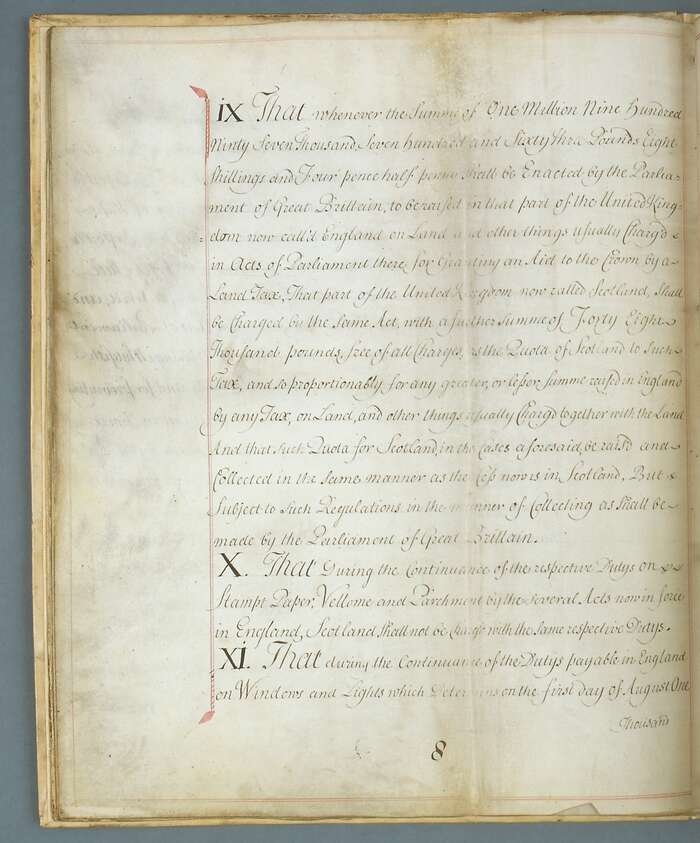 IX That whenever the Summe of One Million Nine Hundred
Ninty Seven Thousand, Seven hundred and Sixty three Pounds Eight
Shillings and Four pence half penny shall be Enacted by the Parlia-
ment of Great Brittain, to be raised in that part of the United King-
dom now call'd England, on Land and other things usually Charg'd
in Acts of Parliament there, for Granting an Aid to the Crown by a
Land Tax, That part of the United Kingdom now called Scotland, Shall
be Charged by the same Act, with a further Summe of Forty Eight
Thousand pounds, free of all Charges, as the Quota of Scotland to such
Tax, and so proportionably for any greater, or lesser summe rais'd in England
by any Tax, on Land, and other things usually Charg'd together with the Land
And that such Quota for Scotland, in the Cases aforesaid, be rais'd and
Collected in the same manner as the Cess now is in Scotland, But
Subject to such Regulations in the manner of Collecting as shall be
made by the Parliament of Great Brittain.
X. That During the Continuance of the respective Dutys on
Stampt Paper, Vellome and Parchment by the several Acts now in force
in England, Scotland shall not be Charg'd with the same respective Dutys.
XI. That during the Continuance of the Dutys payable in England
on Windows and Lights which Determins on the first day of August One
Thousand
8